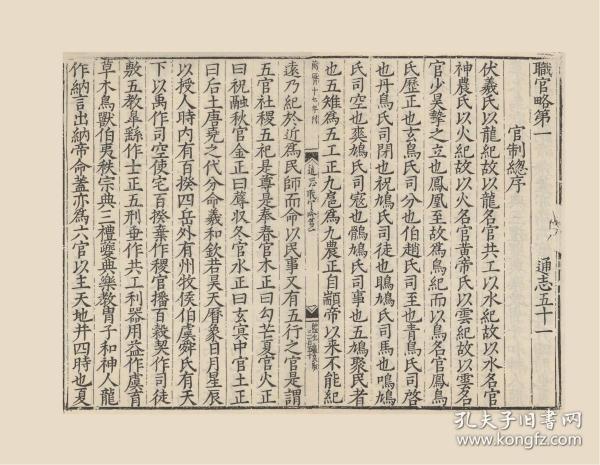 職官略第一
通志五十一
官制總序
伏羲氏以龍紀故以龍名官共工以水紀故以水名官
神農氏以火紀故以火名官黃帝氏以雲紀故以雲名
官少昊摯之立也鳳凰至故爲鳥紀而以鳥名官鳳鳥
氏歷正也玄鳥氏司分也伯趙氏司至也青鳥氏司啓
也丹鳥氏司閉也祝鳩氏司徒也鴡鳩氏司馬也鳲鳩
氏司空也爽鳩氏司寇也鶻鳩氏司事也五鳩聚民者
也五雉爲五工正九扈爲九農正自顓帝以來不能紀
遠乃紀於近爲民師而命以民事又有五行之官是謂
五官社稷五祀是尊是奉春官木正曰勾芒夏官火正
曰祝融秋官金正曰蓐收冬官水正曰玄冥中官土正
曰后土唐堯之代分命羲和欽若昊天曆象日月星辰
以授人時內有百揆四岳外有州牧侯伯虞舜氏有天
下以禹作司空使宅百揆棄作稷官播百穀契作司徒
敷五教皋繇作士正五刑垂作共工利器用益作虞育
草木鳥獸伯夷秩宗典三禮夔典樂教冑子和神人龍
作納言出納帝命蓋亦爲六官以主天地并四時也夏
孔夫子旧书网
www.kongfz.com